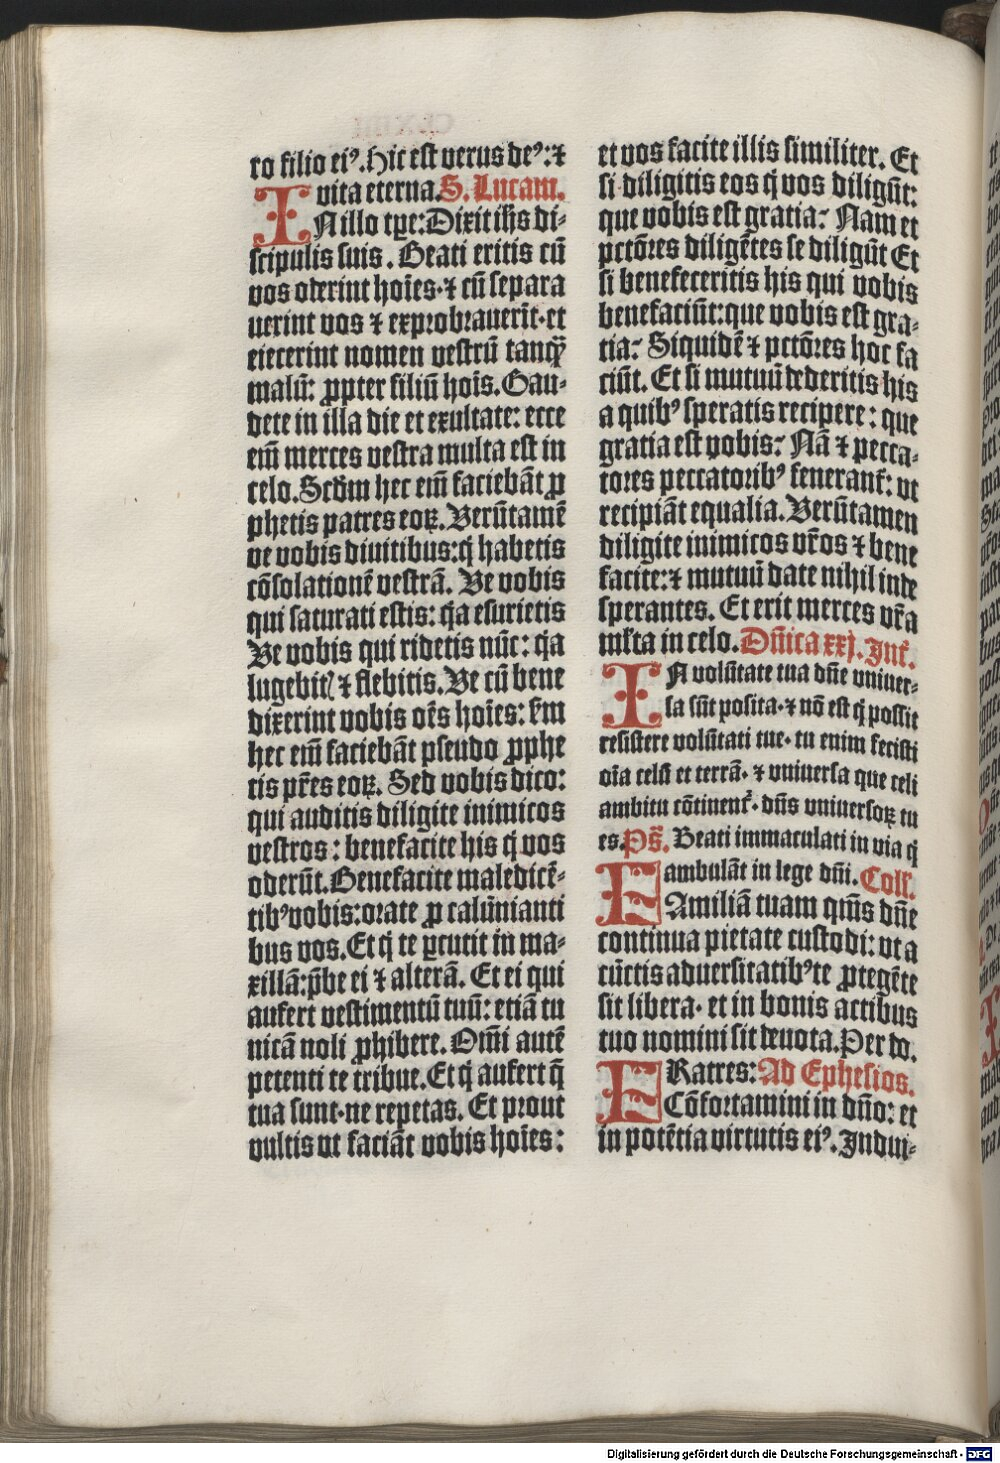 ro filio eiꝰ. Hic est verus deꝰ: ⁊
vita eterna. S. Lucam.
IN illo tꝑe: Dixit ihs di-
scipulis suis. Beati eritis cū
vos oderint hoīes· ⁊ cū separa
uerint vos ⁊ exprobrauerīt· et
eiecerint nomen vestrū tanq̄
malū: ꝓpter filiū hoīs. Gau-
dete in illa die et exultate: ecce
em̄ merces vestra multa est in
celo. Scdm hec em̄ faciebāt ꝓ
phetis patres eoꝝ. Verūtamē
ve vobis diuitibus: q̇ habetis
cōsolationē vestrā. Ve vobis
qui saturati estis: q̇a esurietis
Ve vobis qui ridetis nūc: q̇a
lugebitꝭ ⁊ flebitis. Ve cū bene
dixerint vobis oēs hoīes: scdm
hec em̄ faciebāt pseudo ꝓphe
tis pr̄es eoꝝ. Sed vobis dico:
qui auditis diligite inimicos
vestros: benefacite his q̇ vos
oderūt. Benefacite maledicē-
tibꝰ vobis: orate ꝓ calūnianti
bus vos. Et q̇ te ꝑcutit in ma-
xillā: p̄be ei ⁊ alterā. Et ei qui
aufert vestimentū tuū: etiā tu
nicā noli ꝓhibere. Om̄i autē
petenti te tribue. Et q̇ aufert q̄
tua sunt· ne repetas. Et prout
vultis vt faciāt vobis hoīes:
et vos facite illis similiter. Et
si diligitis eos q̇ vos diligūt:
que vobis est gratia? Nam et
pctōres diligētes se diligūt Et
si benefeceritis his qui vobis
benefaciūt: que vobis est gra-
tia? Siquidē ⁊ pctōres hoc fa
ciūt. Et si mutuū dederitis his
a quibꝰ speratis recipere: que
gratia est vobis? Nā ⁊ pecca-
tores peccatoribꝰ fenerant᷑: vt
recipiāt equalia. Verūtamen
diligite inimicos vr̄os ⁊ bene
facite: ⁊ mutuū date nihil inde
sperantes. Et erit merces vr̄a
ml̄ta in celo. Dn̄ica xxj. Int᷑.
IN volūtate tua dn̄e vniuer-
sa sūt posita· ⁊ nō est q̇ possit
resistere volūtati tue· tu enim fecisti
oīa celū et terrā· ⁊ vniuersa que celi
ambitu cōtinent᷑· dn̄s vniuersoꝝ tu
es. Ps̄. Beati immaculati in via q̇
ambulāt in lege dn̄i. Coll̄.
FAmiliā tuam qm̄s dn̄e
continua pietate custodi: vt a
cūctis aduersitatibꝰ te ꝓtegēte
sit libera· et in bonis actibus
tuo nomini sit deuota. Per do.
FRatres: Ad Ephesios.
Cōfortamini in dn̄o: et
in potētia virtutis eiꝰ. Indui-
Digitalisierung gefördert durch die Deutsche Forschungsgemeinschaft - DFG